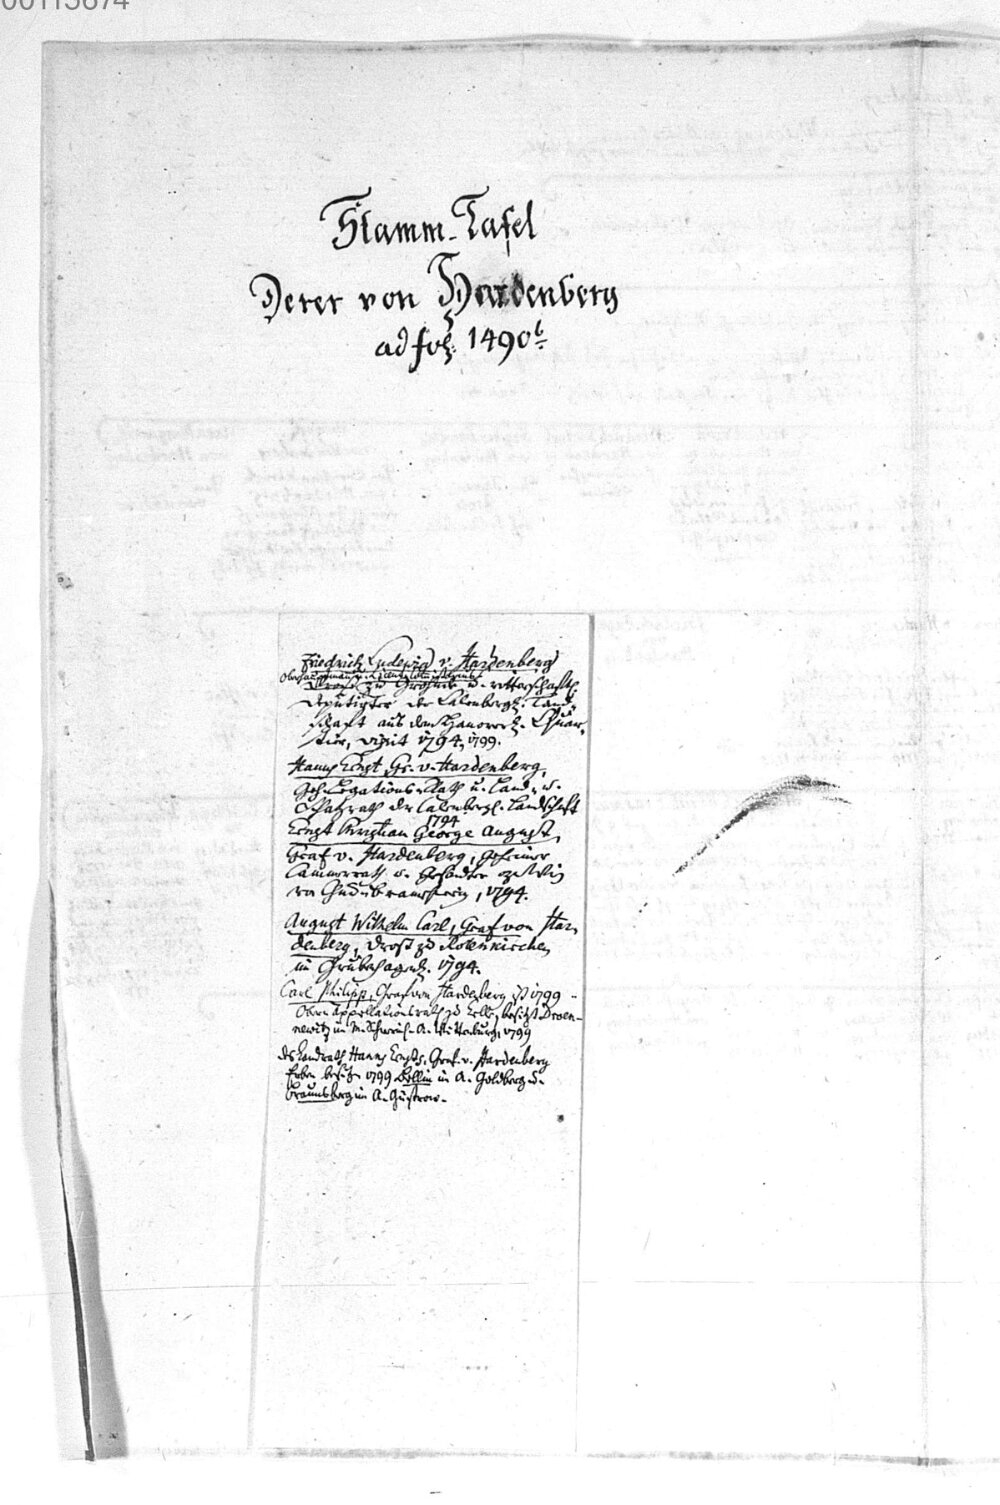 00113674
Stamm-Tafel
Derer von Hardenberg
ad fol. 1490b
Friedrich Ludewig v. Hardenberg
Oberhauptmann
Drost zu Grohnde u. ritterschaftl.
deputirter der Calenbergl. Land-
schaft aus dem Hanoverl. Quar-
tier, vixit 1794, 1799.
Hanns Ernst Gr. v. Hardenberg,
Geh. Legations-Rath u. Land- u.
Schatzrath der Calenbergl. Landschaft
1794
Ernst Christian George August,
Graf v. Hardenberg, geheimer
Cammerrath u. Gesandter
1794.
August Wilhelm Carl, Graf von Har-
denberg, Drost zu Rotenkirchen
im Grubenhagensch. 1794.
Carl Philipp, Graf von Hardenberg ist 1799
Ober Appellationsrath zu Celle, besitzt Dreven-
newitz in M. Schwerin. A. Wittenburg, 1799
des Landrath Hanns Ernsts, Graf v. Hardenberg
Erben besitzen 1799 Bellin in A. Goldberg u.
Braunsberg in A. Güstrow.